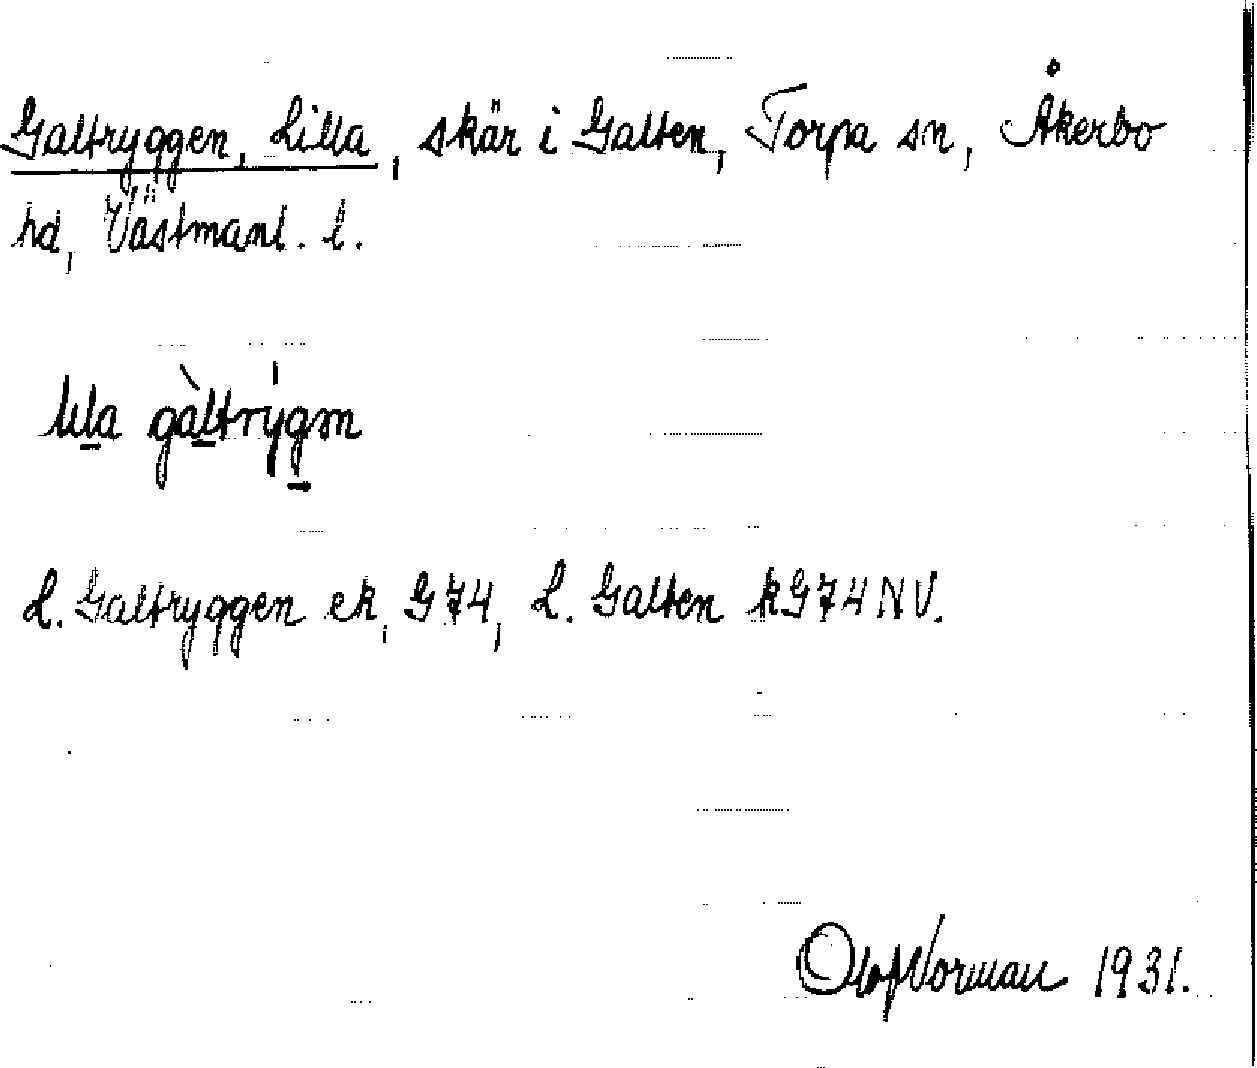 Galtryggen, Lilla, skär i Galten, Torpa sn, Åkerbo
hd, Västmanl. l.
lila gàltrýgən
L. Galtryggen ek, G 74, L. Galten kG74NV.
Olof Norman 1931.